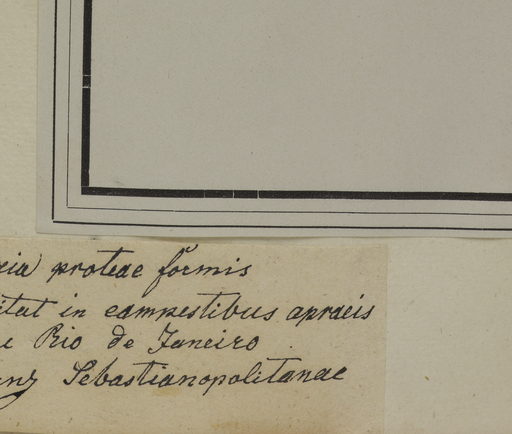 proteae formis
in campestibus apraeis
Rio de Janeiro
Sebastianopolitanae